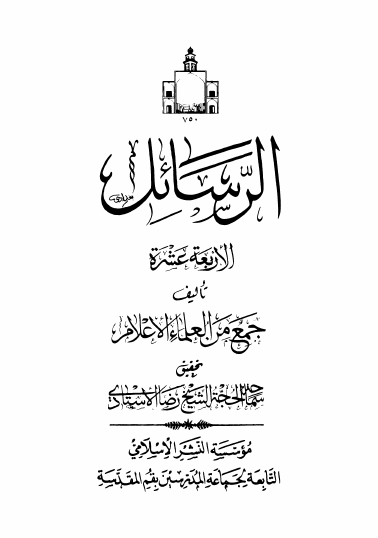 ٧٥٠
الرسائل
الأربعة عشرة
تأليف
جمع من العلماء الأعلام
تحقيق
سماحة الحجة الشيخ رضا الاستادي
مؤسسة النشر الإسلامي
التابعة لجماعة المدرسين بقم المقدسة